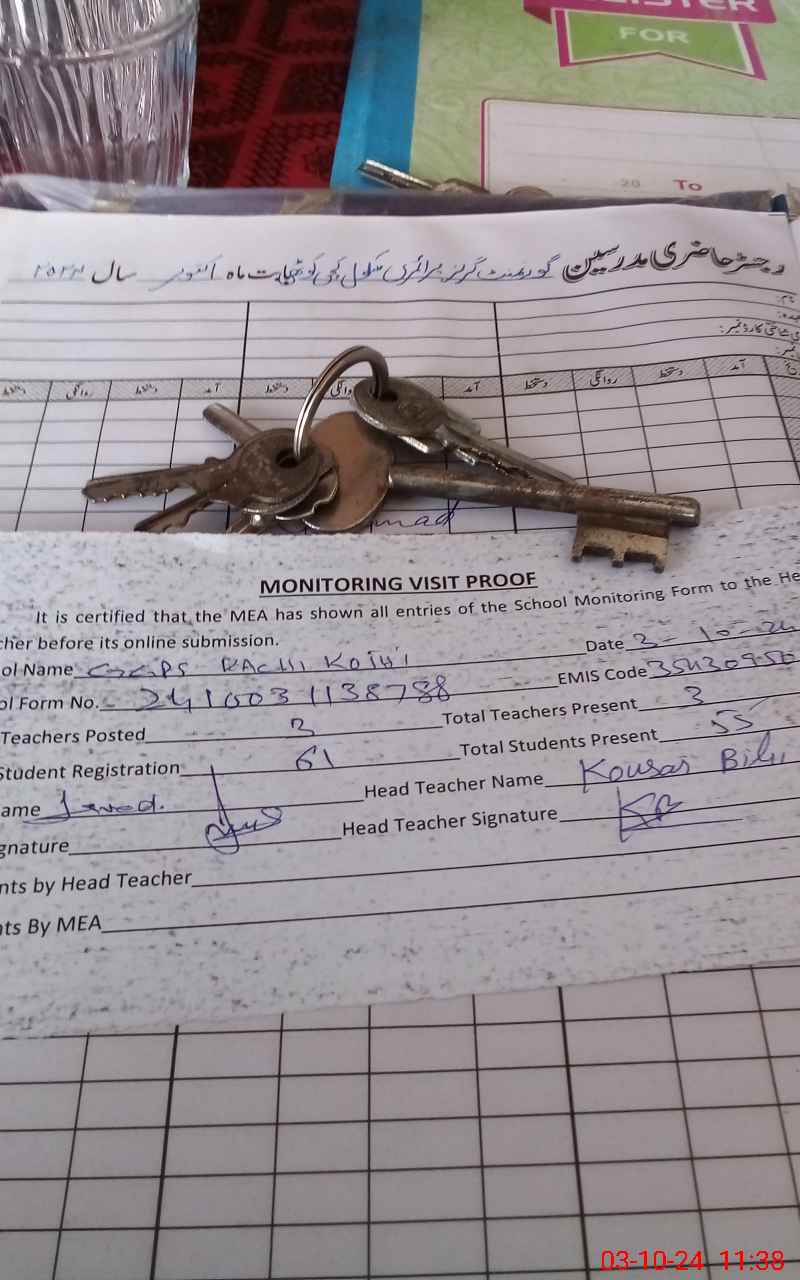 FOR
20 To
رجسٹر حاضری مدرسین گورنمنٹ گرلز پرائمری سکول کچی کوٹھی بابت ماہ اکتوبر سال ۲۰۲۴
آمد دستخط روانگی دستخط آمد
MONITORING VISIT PROOF
It is certified that the MEA has shown all entries of the School Monitoring Form to the He
cher before its online submission.
Date 3-10-24
ol Name GGPS KACHI KOTHI
EMIS Code 35430950
ol Form No. 2410031138788
Teachers Posted 3 Total Teachers Present 3
Student Registration 61 Total Students Present 55
ame Javed. Head Teacher Name Kousar Bibi
gnature Head Teacher Signature KB
nts by Head Teacher
nts By MEA
03-10-24 11:38